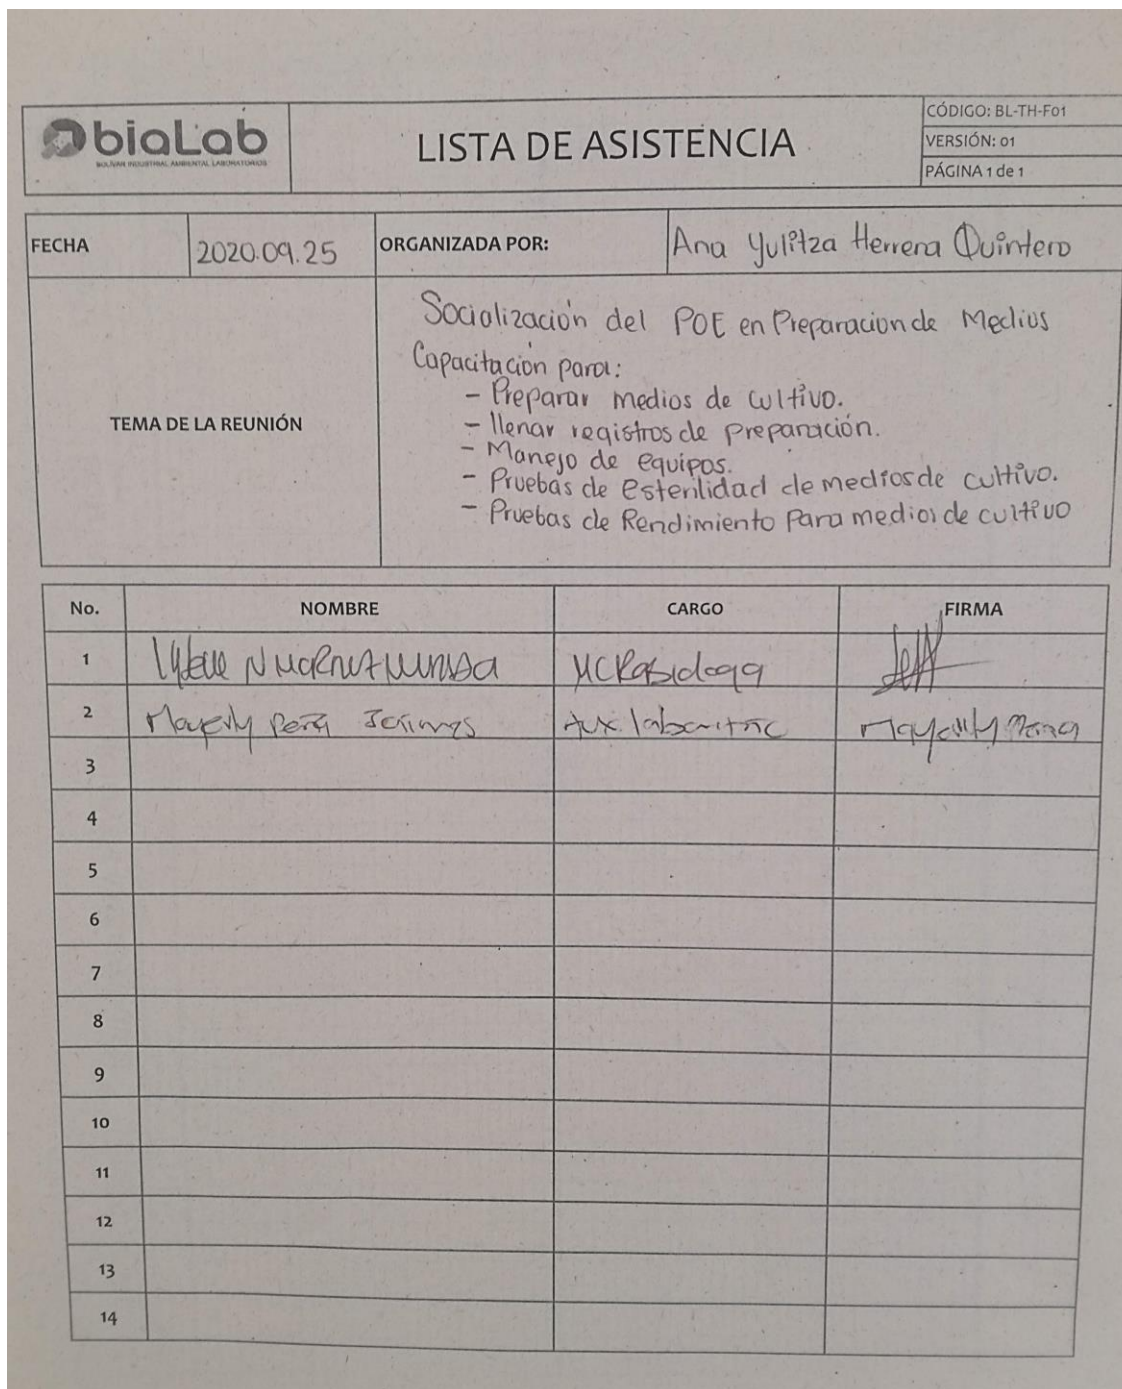 biaLab
BOLÍVAR INDUSTRIAL AMBIENTAL LABORATORIOS
LISTA DE ASISTENCIA
CÓDIGO: BL-TH-F01
VERSIÓN: 01
PÁGINA 1 de 1
FECHA
2020.09.25
ORGANIZADA POR:
Ana Yulitza Herrera Quintero
TEMA DE LA REUNIÓN
Socialización del POE en Preparacion de Medios
Capacitación para:
- Preparar medios de cultivo.
- llenar registros de preparación.
- Manejo de equipos.
- Pruebas de esterilidad de medios de cultivo.
- Pruebas de Rendimiento Para medios de cultivo
No. NOMBRE CARGO FIRMA
1
2 Mayerly Peña Aux. Mayerly Peña
3
4
5
6
7
8
9
10
11
12
13
14